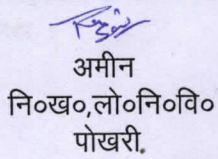 अमीन
नि०ख०,लो०नि०वि०
पोखरी.